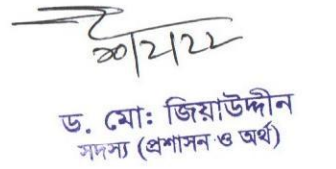 ড. মো: জিয়াউদ্দীন
সদস্য (প্রশাসন ও অর্থ)